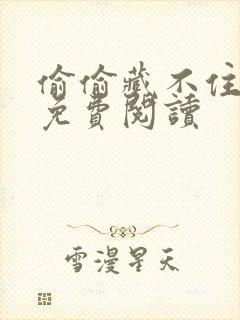 偷偷藏不住
免費閱讀
雪漫星天